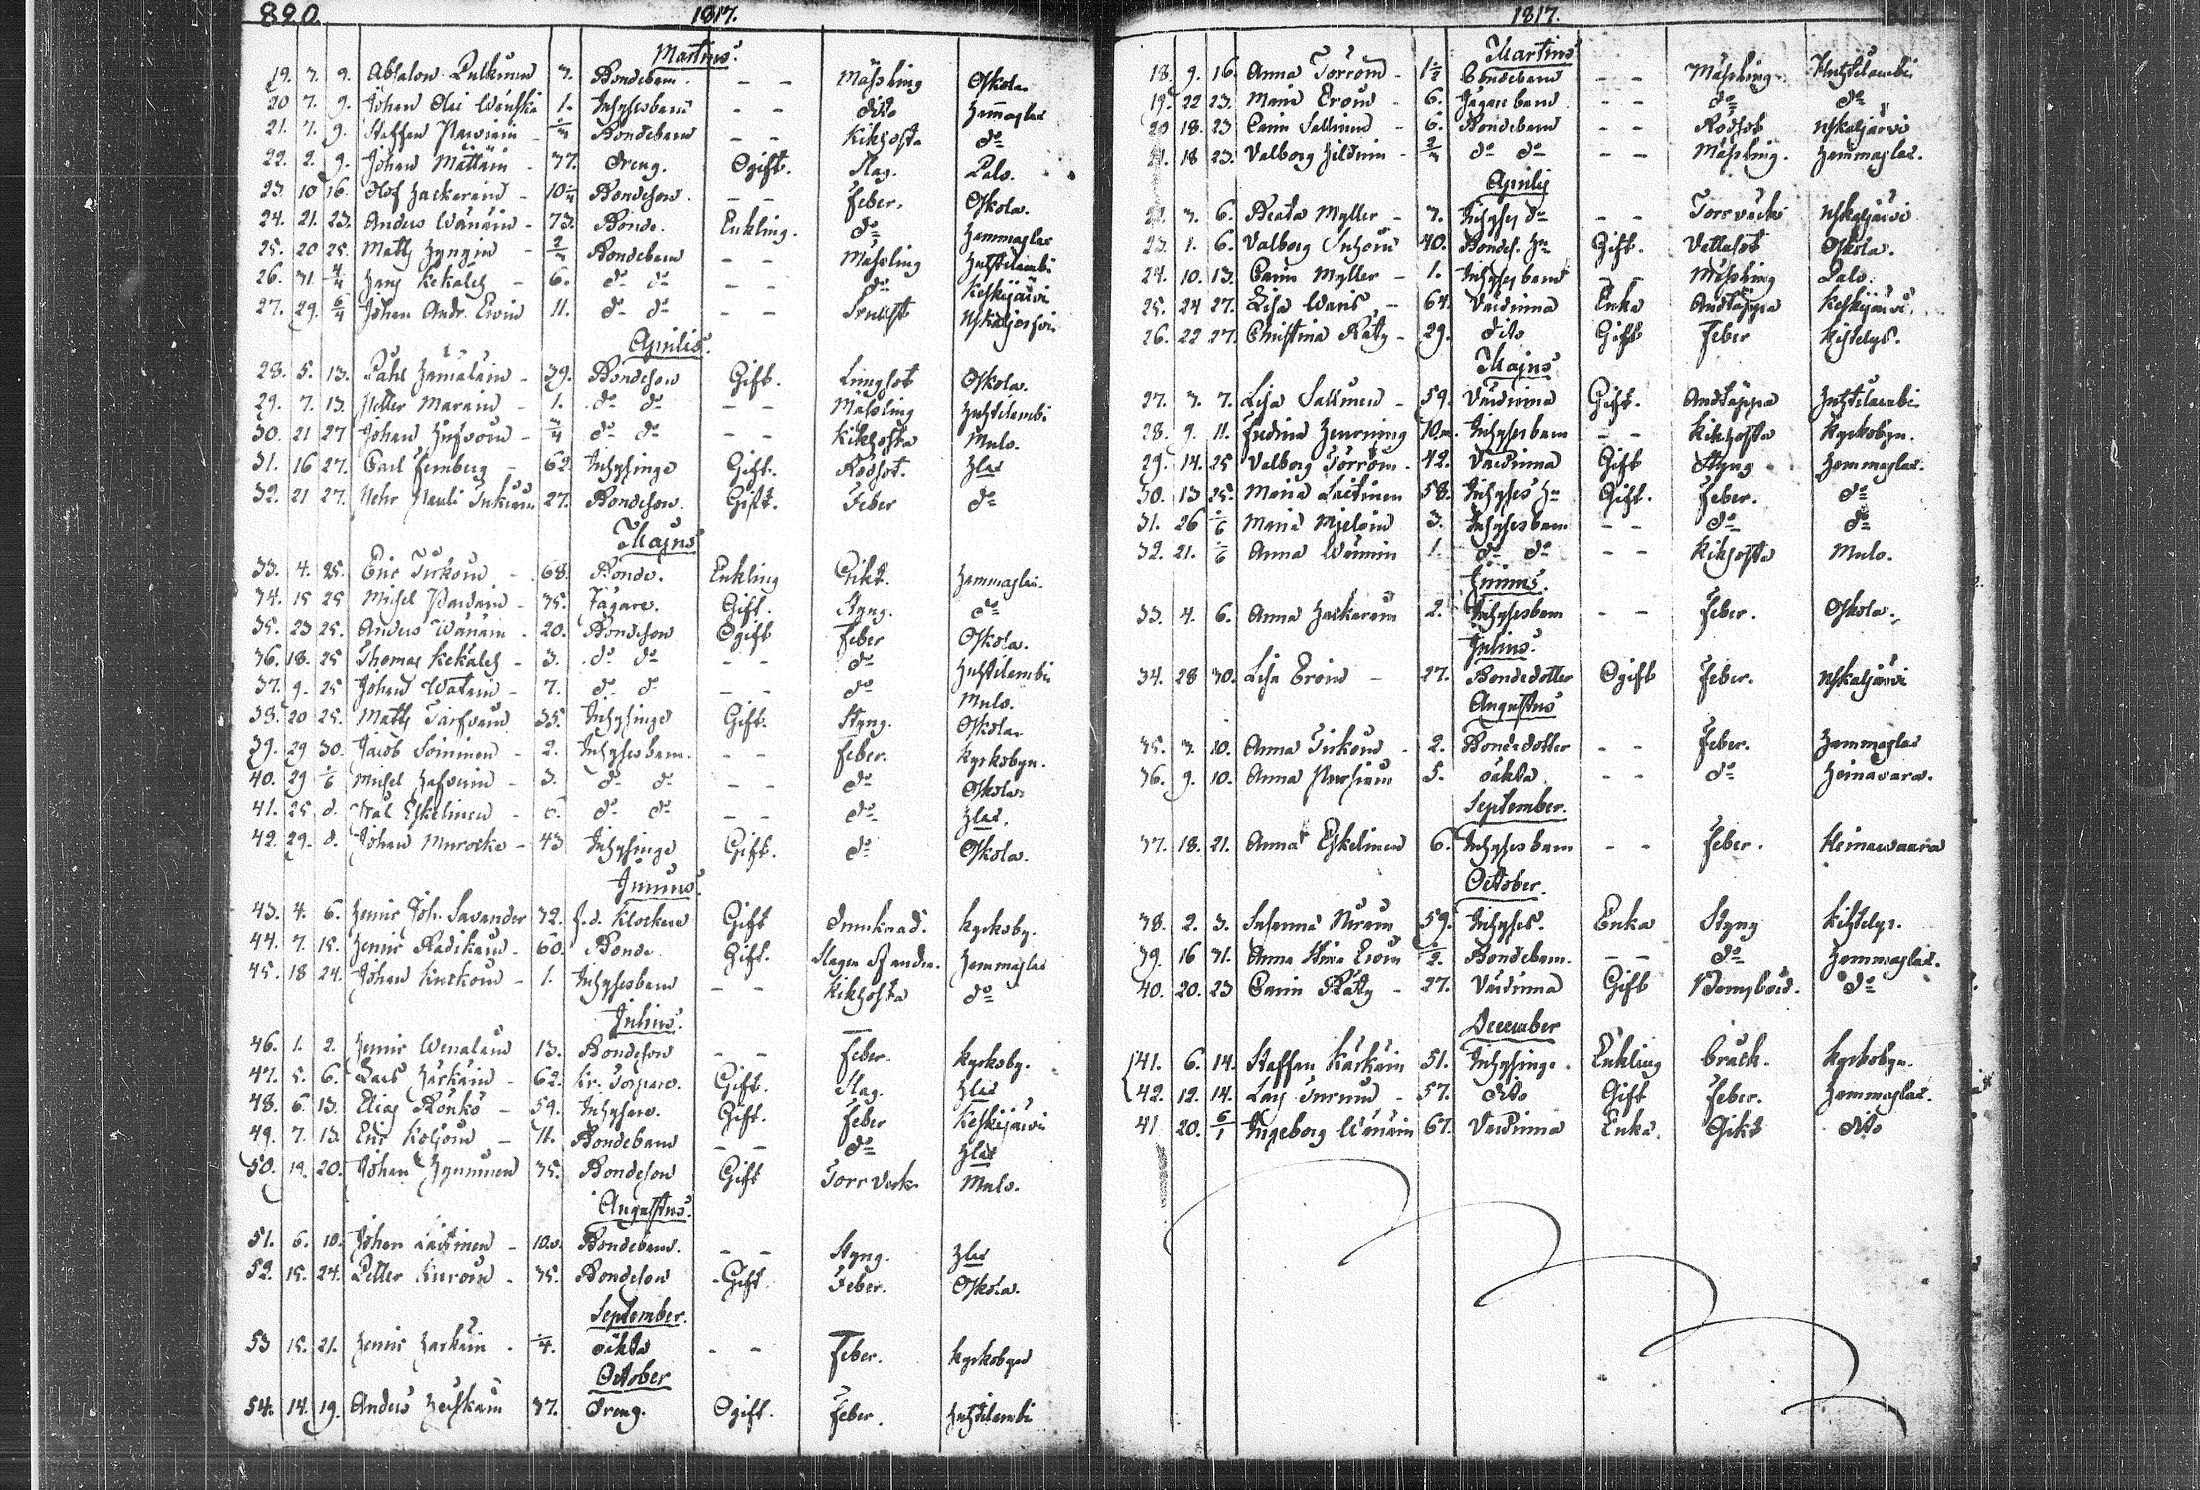 820. 1817.
Martius.
19. 7. 9. Absalon Pulkinen 3. Bondebarn. - - Mässling Oskola.
20 7. 9. Johan Olai 1. Inhysesbarn - - dito Hammaslax
21. 7. 9. Staffan Parviain - Bondebarn - - Kikhosta do
22. 2. 9. Johan Mattain - 37. Dreng. Ogift. Slag. Palo.
23. 10 16. Olof Hackarain - 10 Bondeson. - - Feber. Oskola.
24. 21. 23. Anders Wänäin - 73. Bonde. Enkling. do Hammaslax
25. 20 25. Matts Hyngin - 2/3 Bondebarn - - Mässling Huhtilambi
26. 31 4/4 Hans Kekäleh - 6. do do - - do Keskijärvi
27. 29. 6/4 Johan Andr. Eroin 11. do do - - Niskajärvi
Aprilis.
28. 5. 13. Påhl Hämäläin - 39. Bondeson Gift. Lungsot Oskola.
29. 7. 13. Petter Marain - 1. do do - - Mässling Huhtilambi
30. 21 27 Johan - 3/4 do do - - Kikhosta Mulo.
31. 16 27. Carl Femberg - 62. Inhysinge Gift. Rödsot. Hlax
32. 21 27. Pehr Pauli 27. Bondeson. Gift. Feber do
Majus
33. 4. 25. Eric Tirkoin - 68. Bonde. Enkling Gikt. Hammaslax.
34. 15 25 Michel Parviain - 35. Jägare. Gift. Styng. do
35. 23 25. Anders Wänäin - 20. Bondeson Ogift Feber Oskola.
36. 18. 25 Thomas Kekäleh - 3. do do - - do Huhtilambi
37. 9. 25 Johan Watain - 7. do do - - do Mulo.
38. 20 25. Matts Tarfvain 35. Inhysinge Gift. Styng. Oskola.
39. 29 30. Jacob Soininen - 2. Inhysesbarn. - - Feber. Kyrkobyn.
40. 29 1/6 Michel - 3. do do - - do Oskola.
41. 25 d. Eskelinen - do do - - do Hlax.
42. 29. d. Johan Murocke - 43 Inhysinge Gift. do Oskola.
Junius.
43. 4. 6. Henric Joh. Savander 32. f.d. Klockare Gift Drunknad. Kyrkoby.
44. 7. 15. Henric Radikain - 60. Bonde Gift. Slagen Hammaslax
45. 18 24. Johan - 1. Inhysesbarn - - Kikhosta do
Julius.
46. 1. 2. Henric Wenäläin 13. Bondeson - - Feber. Kyrkoby.
47. 5. 6. Lars Härkäin - 62. Kr. Torpare. Gift. Slag. Hlax
48. 6. 13. Elias Rönkö - 59. Inhyses. Gift. Feber Keskijärvi
49. 7. 13. Eric Koljoin - 11. Bondebarn - - do Hlax
50. 12. 20. Johan Hyvönnen 35. Bondeson Gift Torrverk. Mulo.
Augustus.
51. 6. 10. Johan Laitinen - Bondebarn. - - Styng. Hlax
52. 15. 24. Petter Kuroin - 35. Bondeson - Gift Feber. Oskola.
September.
53 15. 21. Henric Harkäin - 1/4. oäkta - - Feber. Kyrkobyn
October
54. 14. 19. Anders 37. Dreng. Ogift. Feber. Huhtilambi
1817.
Martius
18. 9. 16. Anna Torroin - 1 1/2 Bondebarn - - Mässling Huhtilambi
19. 22 23. Maria Eroin - 6. Jägarebarn - - do do
20 18. 23 Carin Sallinen - 6. Bondebarn - - Rödsot Niskajärvi
21. 18 23. Valborg - 2/3 do do - - Mässling. Hammaslax.
Aprilis
22. 3. 6. Beata Myller - 3. Inhyses do - - Torrvärk Niskajärvi
23. 1. 6. Valborg 40. Bondes. Hu Gift. Vattusot Oskola.
24. 10. 13. Carin Myller - 1. Inhysesbarn - - Mässling Palo.
25. 24 27. Lisa Waris - 64. Värdinna Enka Andtäppa Keskijärvi.
26. 22 27. Christina Räty - 29. dito Gift Feber
Majus
27. 3. 7. Lisa Sallinen - 59. Värdinna Gift. Andtäppa Huhtilambi
28. 9. 11. Fredrica Henrning 10m. Inhysesbarn - - Kikhosta Kyrkobyn.
29. 14. 25 Valborg Torroin - 42. Värdinna Gift Styng Hammaslax.
30. 13 25. Maria Laitinen 58. Inhyses Hu Gift. Feber. do
31. 26 1/6 Maria - 3. Inhysesbarn - - do do
32. 21. 1/6 Anna 1. do do - - Kikhosta Mulo.
Junius.
33. 4. 6. Anna Hackarain 2. Inhysesbarn - - Feber. Oskola.
Julius.
34. 28 30. Lisa Eroin - 27. Bondedotter Ogift Feber. Niskajärvi
Augustus
35. 3. 10. Anna Tirkoin - 2. Bondedotter - - Feber. Hammaslax
36. 9. 10. Anna 5. oäkta - - do Heinavara.
September.
37. 18. 21. Anna Eskelinen 6. Inhysesbarn - - Feber. Heinawaara
October.
38. 2. 3. Susanna 59. Inhyses. Enka Styng
39. 16 31. Anna Stina Eroin 1/2 Bondebarn. - - do Hammaslax.
40. 20. 23 Carin Räty - 27. Värdinna Gift Barnsbörd. do
December
41. 6. 14. Staffan Kärkäin 51. Inhysinge. Enkling bråck. Kyrkobyn.
42. 12. 14. Lars Turunen - 57. dito Gift Feber. Hammaslax.
41 20. 6/1 Ingeborg Wänäin 67. Värdinna Enka. Gikt dito